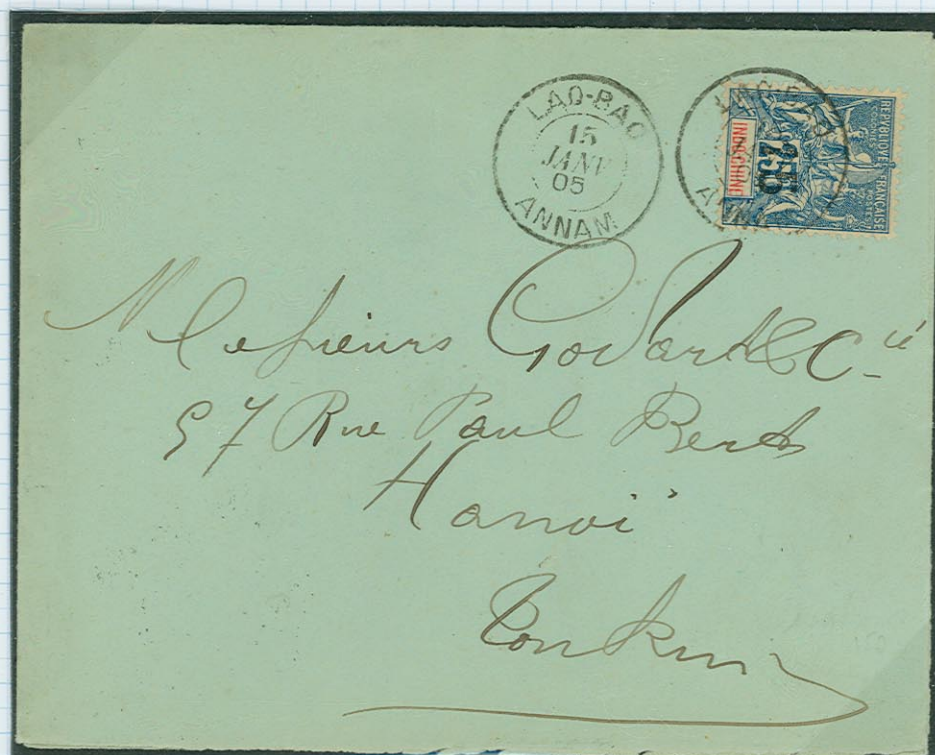 LAO-BAO
15
JANV
05
ANNAM
REPVBLIQVE FRANÇAISE
INDOCHINE
25
ANNAM
Messieurs Godard & Cie
57 Rue Paul Bert
Hanoï
Tonkin